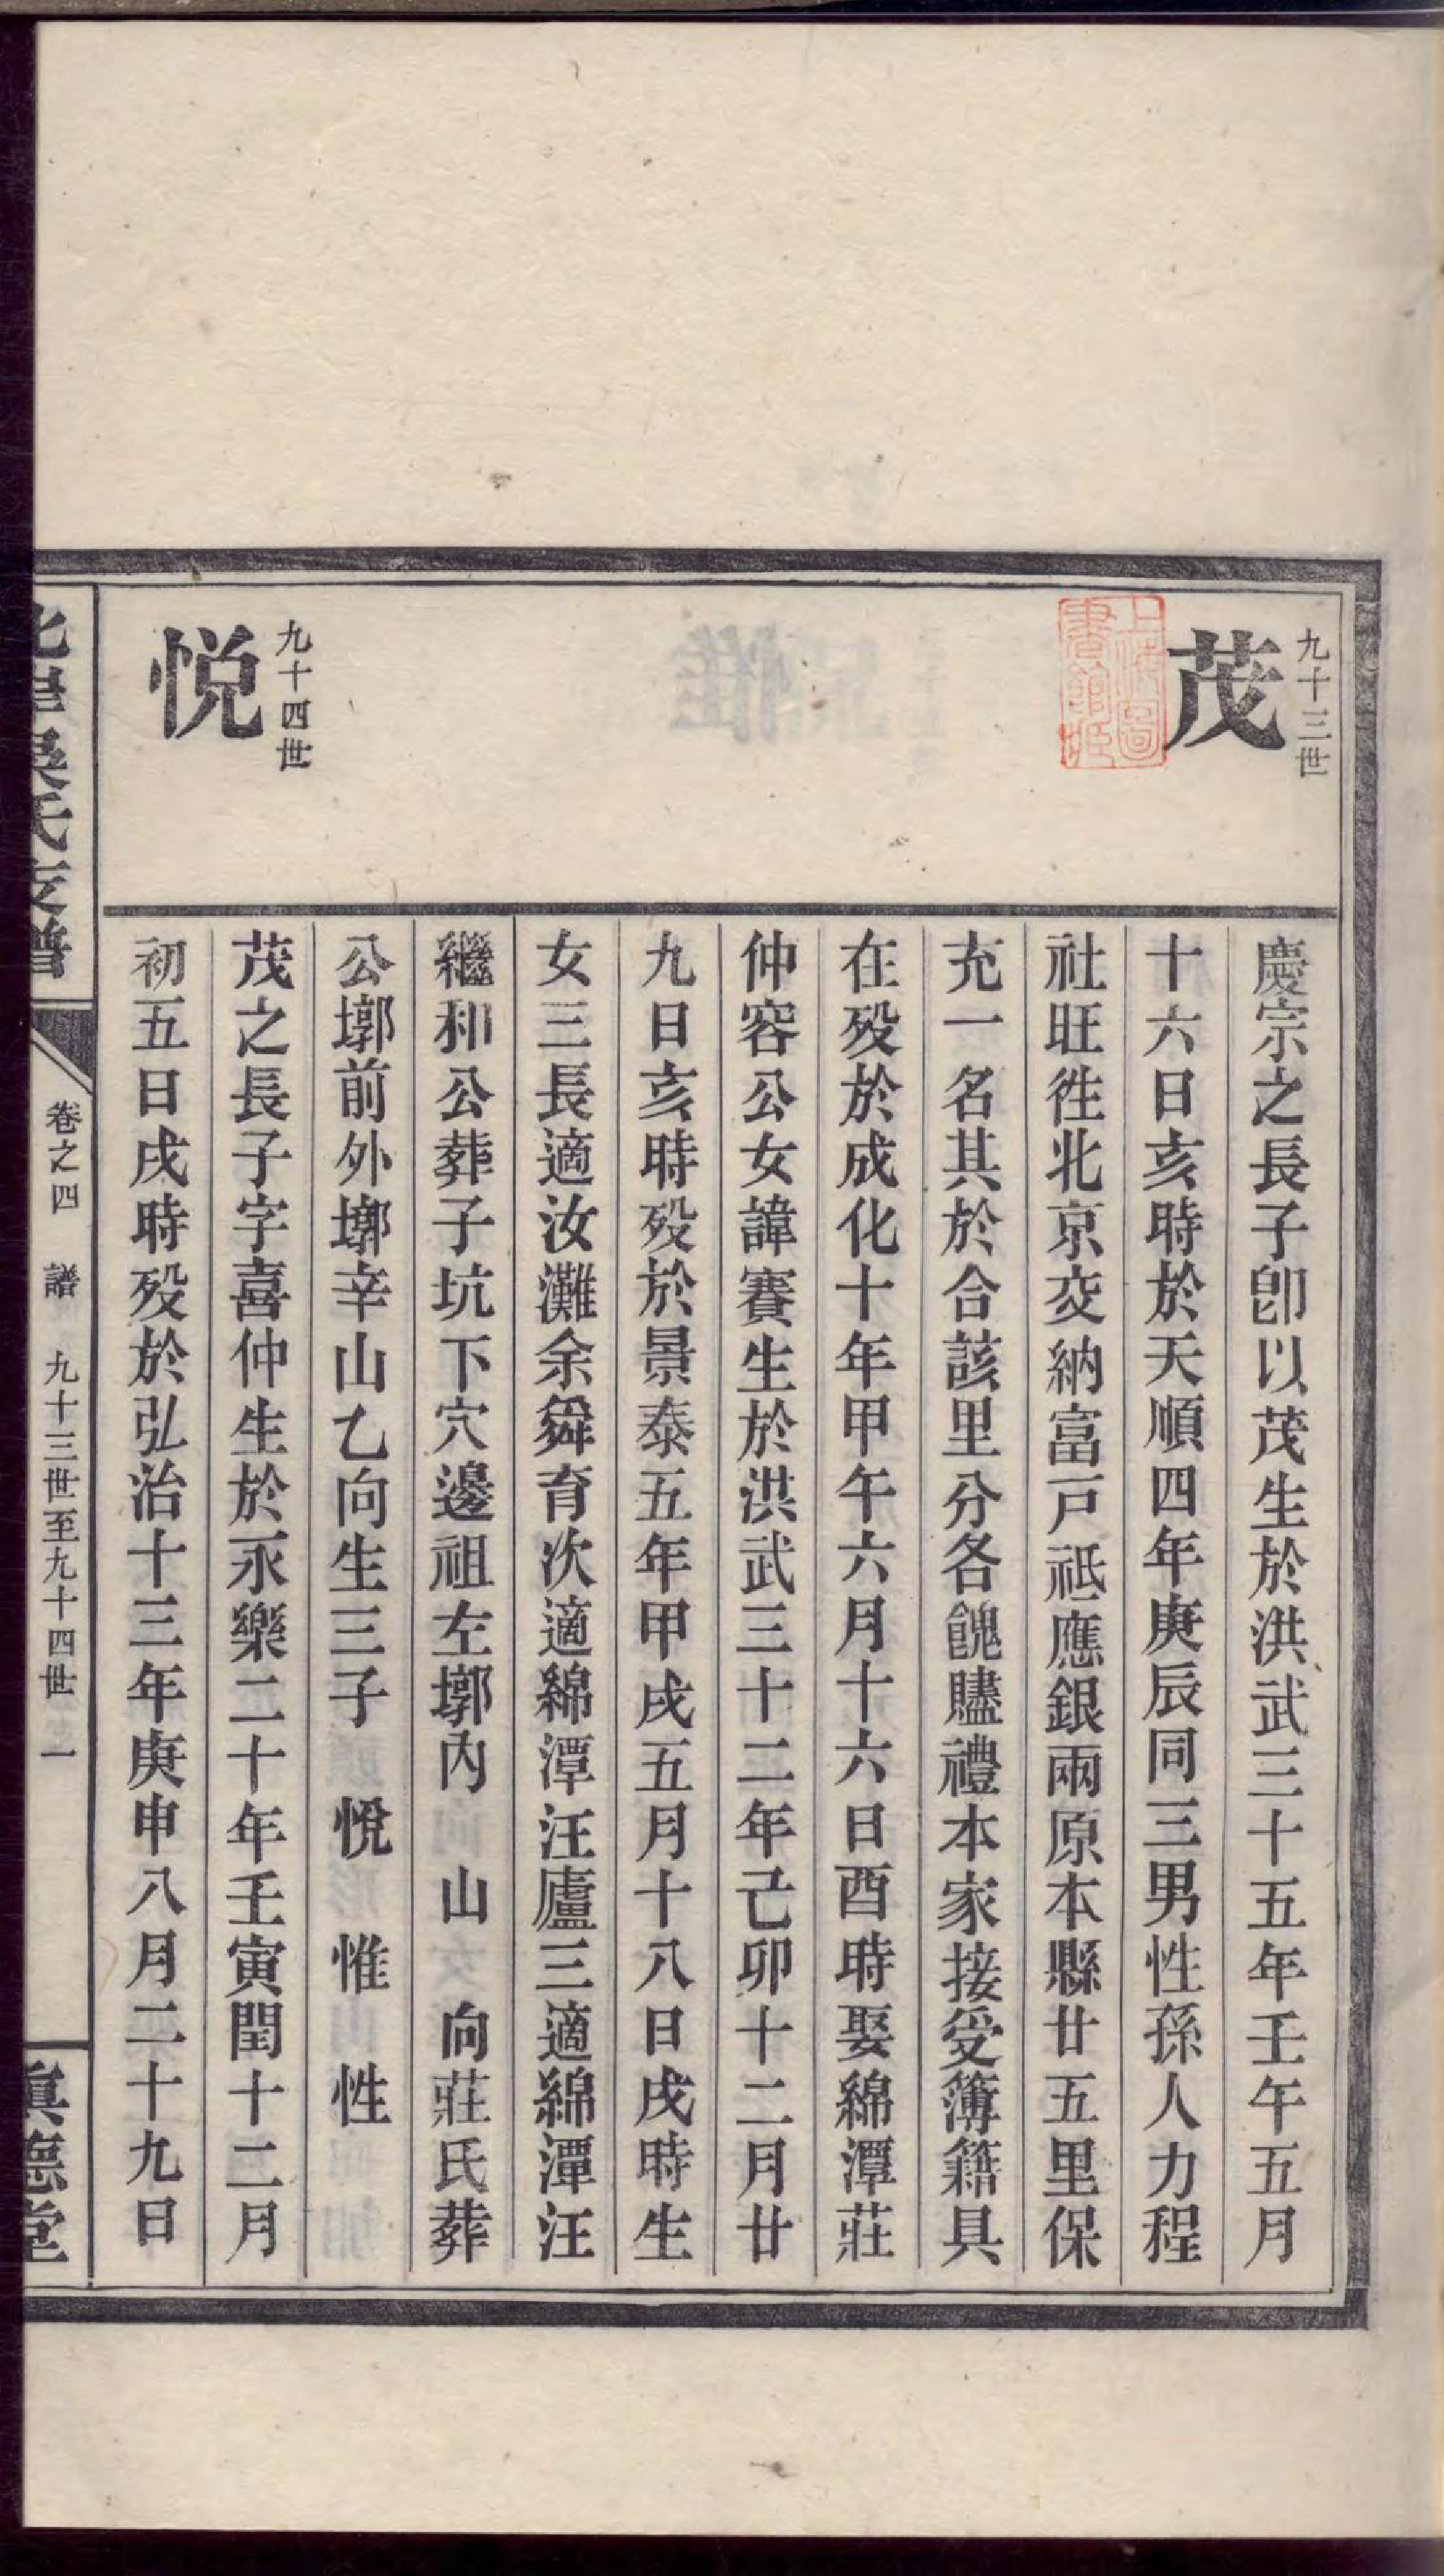 九十三世
茂
慶宗之長子卽以茂生於洪武三十五年壬午五月
十六日亥時於天順四年庚辰同三男性孫人力程
社旺徃北京交納富戸祗應銀兩原本縣廿五里保
充一名其於合該里分各餽贐禮本家接受簿籍具
在歿於成化十年甲午六月十六日酉時娶綿潭莊
仲容公女諱賽生於洪武三十二年己卯十二月廿
九日亥時歿於景泰五年甲戌五月十八日戌時生
女三長適汝灘余舜育次適綿潭汪廬三適綿潭汪
繼和公葬子坑下穴邊祖左墎內 山 向莊氏葬
公墎前外墎辛山乙向生三子 悅 惟 性
九十四世
悅
茂之長子字喜仲生於永樂二十年壬寅閏十二月
初五日戌時歿於弘治十三年庚申八月二十九日
吳氏支譜
卷之四 譜 九十三世至九十四世 一
眞德堂
上海圖書館藏